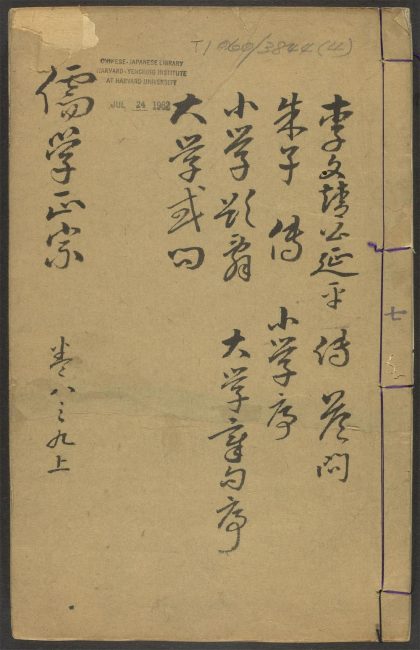 T1060/3844(4)
CHINESE-JAPANESE LIBRARY
HARVARD-YENCHING INSTITUTE
AT HARVARD UNIVERSITY
JUL 24 1962
七
李文靖公延平 傳 答問
朱子 傳 小学序
小学題辭 大学章句序
大学或问
儒学正宗 卷八之九上